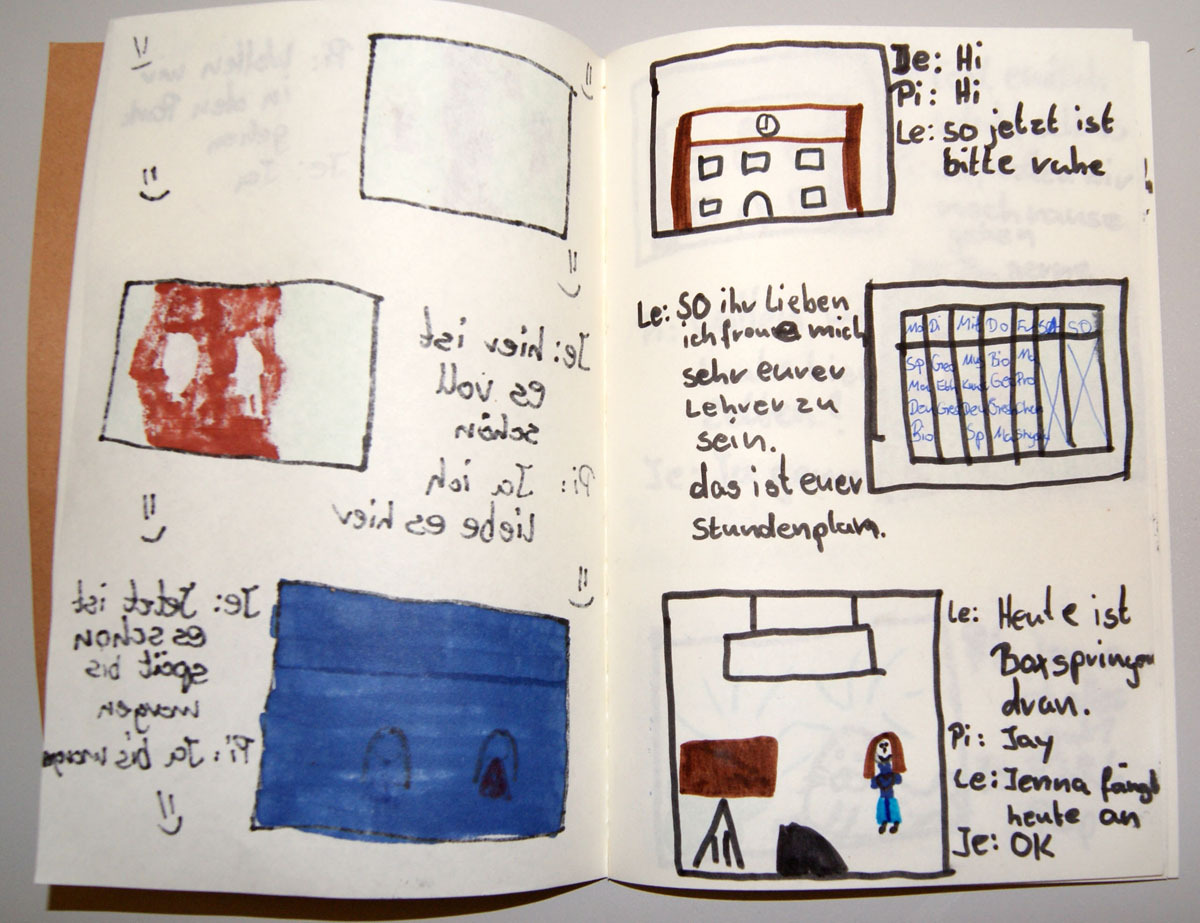 Pi: Wollen wir
in den Park
gehen
Je: Ja
Je: hier ist
es voll
schön
Pi: Ja ich
liebe es hier
Je: Jetzt ist
es schon
spät bis
morgen
Pi: Ja bis morgen
Je: Hi
Pi: Hi
Le: so jetzt ist
bitte ruhe
Le: SO ihr Lieben
ich froue mich
sehr eurer
Lehrer zu
sein.
das ist euer
Stundenplan.
Mo Di Mit Do Fr SA SO
Sp Geo Mu Bio Ma
Ma Geo Pro
Deu Deu
Bio Sp
Le: Heute ist
Boxspringen
dran.
Pi: Jay
Le: Jenna fängt
heute an
Je: OK